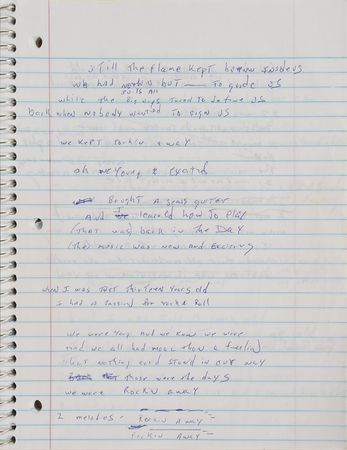 still The flame kept burnin insdevs
we had nothin but — To guide US
while the big wigs Tured To Before US
back when nobody wanted To sign US
we KEPT rockin away
oh we young & exated
Bought A sears guiter
And learend how To Play
(That was) back in The DAY
(The) music was new And Exciting
when I was Just Thirteen years old
I had a Passion for rock & Roll
we were young And we knew we were
and we all had more Than a feelin
that nothing could stand in our way
those were the days
we were Rockin away
2 melodies - Rockin Away
rockin Away